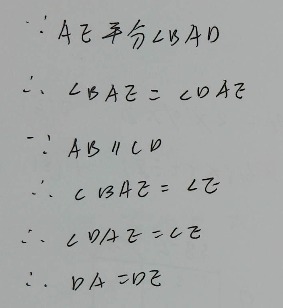 ∵ AE平分∠BAD
∴ ∠BAE=∠DAE
∵ AB∥CD
∴ ∠BAE=∠E
∴ ∠DAE=∠E
∴ DA=DE